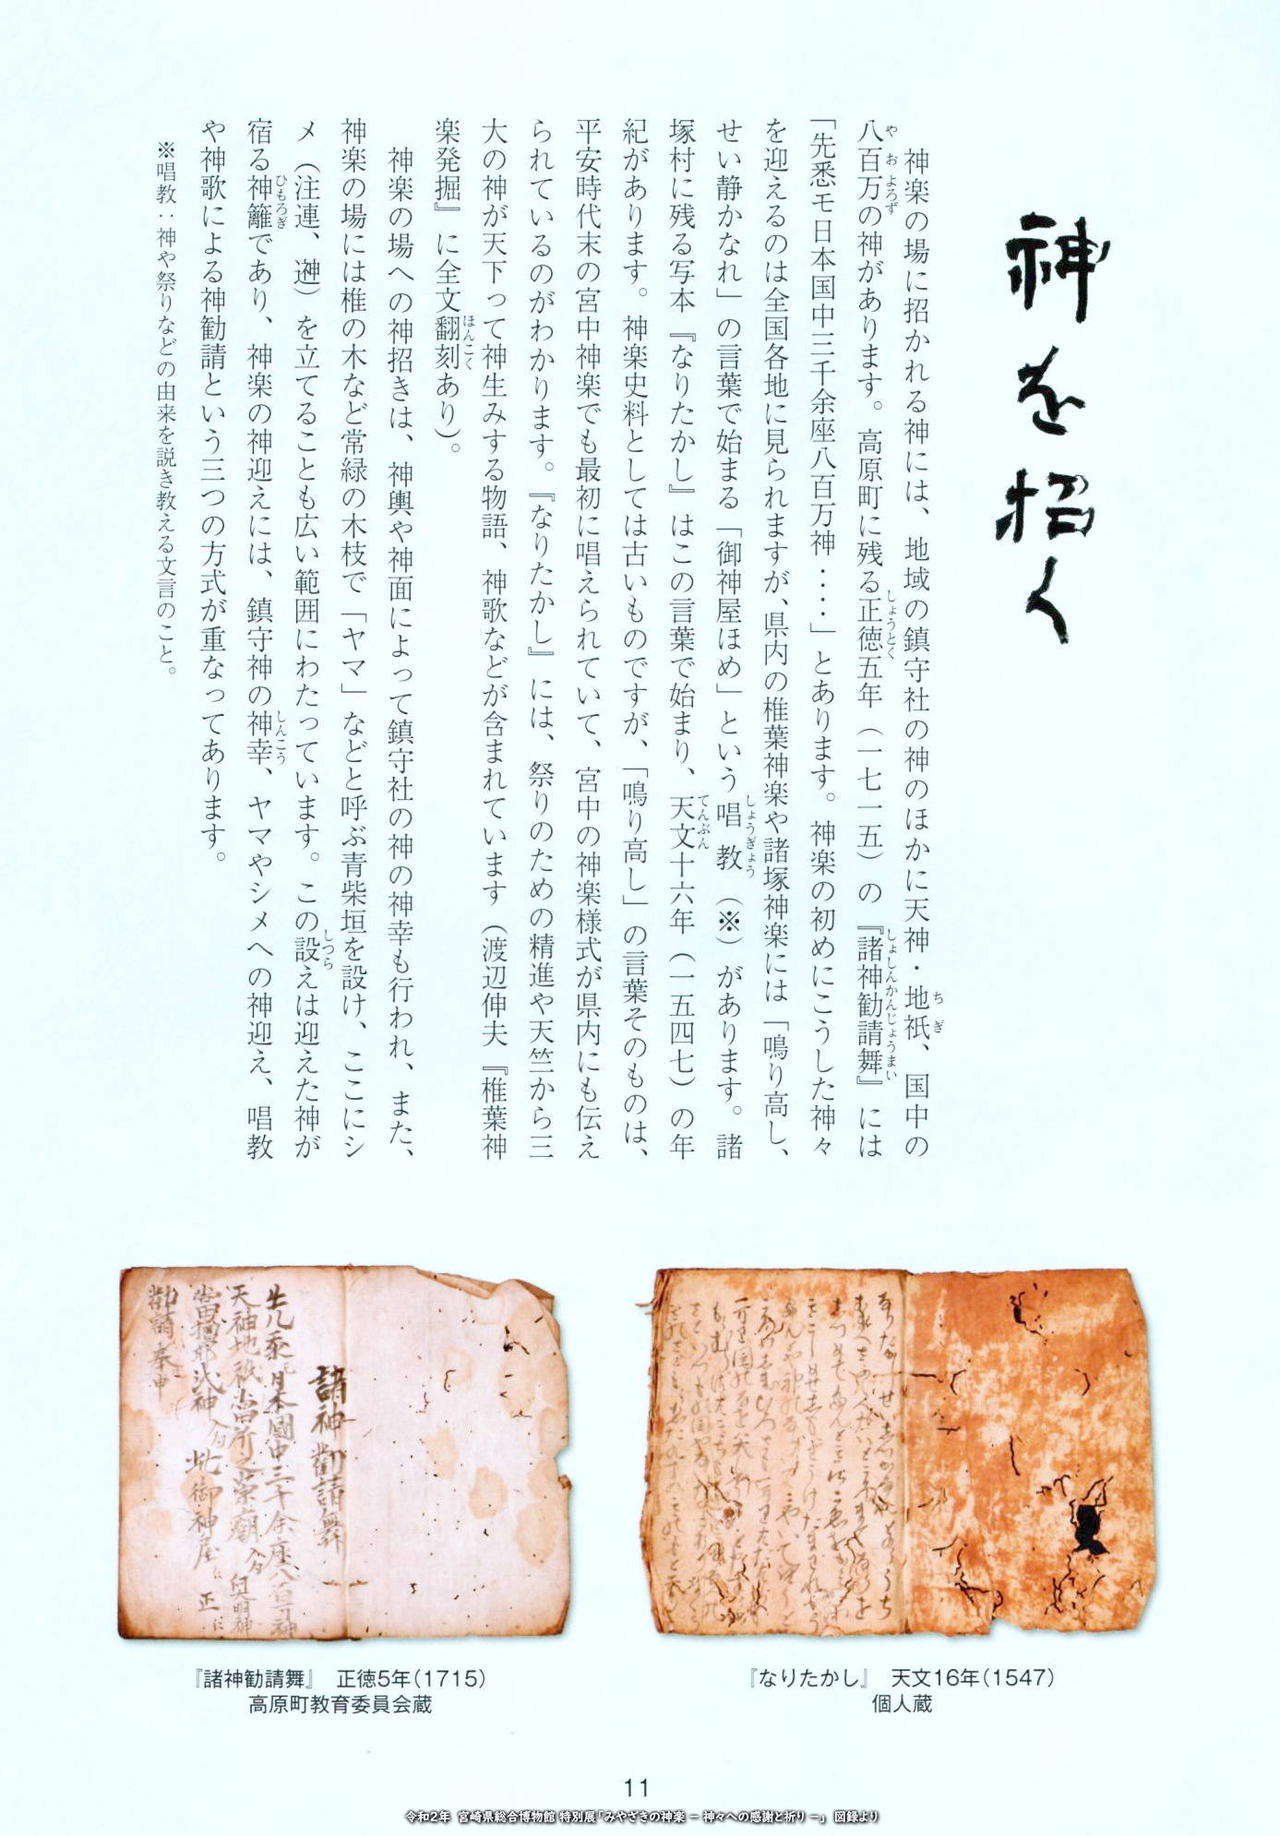 神を招く
神楽の場に招かれる神には、地域の鎮守社の神のほかに天神・地祇、国中の
八百万の神があります。高原町に残る正徳五年（一七一五）の『諸神勧請舞』には
「先悉モ日本国中三千余座八百万神・・・・」とあります。神楽の初めにこうした神々
を迎えるのは全国各地に見られますが、県内の椎葉神楽や諸塚神楽には「鳴り高し、
せい静かなれ」の言葉で始まる「御神屋ほめ」という唱教（※）があります。諸
塚村に残る写本『なりたかし』はこの言葉で始まり、天文十六年（一五四七）の年
紀があります。神楽史料としては古いものですが、「鳴り高し」の言葉そのものは、
平安時代末の宮中神楽でも最初に唱えられていて、宮中の神楽様式が県内にも伝え
られているのがわかります。『なりたかし』には、祭りのための精進や天竺から三
大の神が天下って神生みする物語、神歌などが含まれています（渡辺伸夫『椎葉神
楽発掘』に全文翻刻あり）。
神楽の場への神招きは、神輿や神面によって鎮守社の神の神幸も行われ、また、
神楽の場には椎の木など常緑の木枝で「ヤマ」などと呼ぶ青柴垣を設け、ここにシ
メ（注連、𨕫）を立てることも広い範囲にわたっています。この設えは迎えた神が
宿る神籬であり、神楽の神迎えには、鎮守神の神幸、ヤマやシメへの神迎え、唱教
や神歌による神勧請という三つの方式が重なってあります。
※唱教：神や祭りなどの由来を説き教える文言のこと。
諸神勧請舞
日本國中三千余座八百万神
天神地祇
此御神屋に正に
勧請奉申
『諸神勧請舞』　正徳5年（1715）
高原町教育委員会蔵
『なりたかし』　天文16年（1547）
個人蔵
11
令和2年 宮崎県総合博物館 特別展「みやざきの神楽 － 神々への感謝と祈り －」 図録より